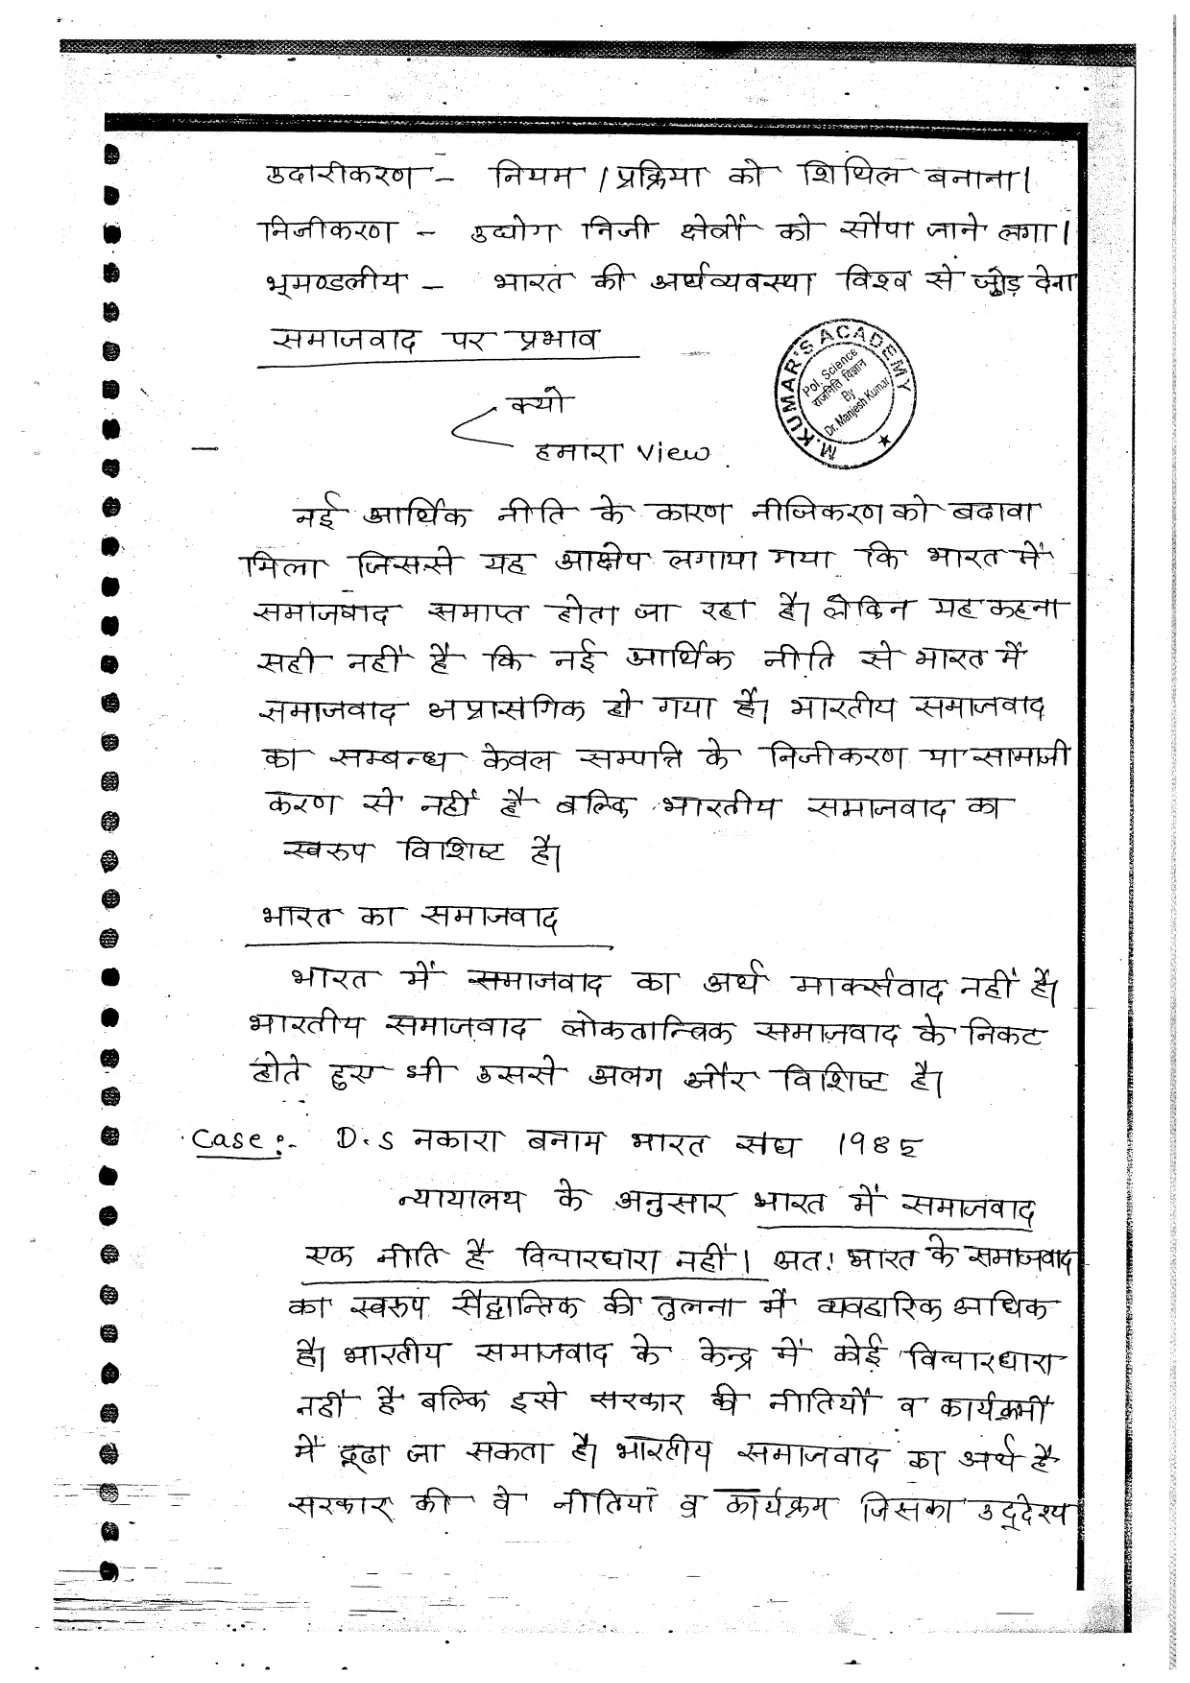 उदारीकरण - नियम / प्रक्रिया को शिथिल बनाना।
निजीकरण - उद्योग निजी क्षेत्रों को सौपा जाने लगा।
भूमण्डलीय - भारत की अर्थव्यवस्था विश्व से जोड़ देना
समाजवाद पर प्रभाव
M.KUMAR'S ACADEMY
Pol. Science
राजनिति विज्ञान
By
Dr. Manjesh Kumar
क्यो
हमारा view.
नई आर्थिक नीति के कारण नीजिकरण को बढावा
मिला जिससे यह आक्षेप लगाया गया कि भारत में
समाजवाद समाप्त होता जा रहा है। लेकिन यह कहना
सही नहीं है कि नई आर्थिक नीति से भारत में
समाजवाद अप्रासंगिक हो गया है। भारतीय समाजवाद
का सम्बन्ध केवल सम्पत्ति के निजीकरण या सामाजी
करण से नहीं है बल्कि भारतीय समाजवाद का
स्वरुप विशिष्ट है।
भारत का समाजवाद
भारत में समाजवाद का अर्थ मार्क्सवाद नहीं है।
भारतीय समाजवाद लोकतान्त्रिक समाजवाद के निकट
होते हुए भी उससे अलग और विशिष्ट है।
Case:- D.S नकारा बनाम भारत संघ 1985
न्यायालय के अनुसार भारत में समाजवाद
एक नीति है विचारधारा नहीं। अत: भारत के समाजवाद
का स्वरुप सैद्धान्तिक की तुलना में व्यवहारिक अधिक
है। भारतीय समाजवाद के केन्द्र में कोई विचारधारा
नहीं है बल्कि इसे सरकार की नीतियों व कार्यक्रमों
में ढूढा जा सकता है। भारतीय समाजवाद का अर्थ है
सरकार की वे नीतियां व कार्यक्रम जिसका उद्देश्य